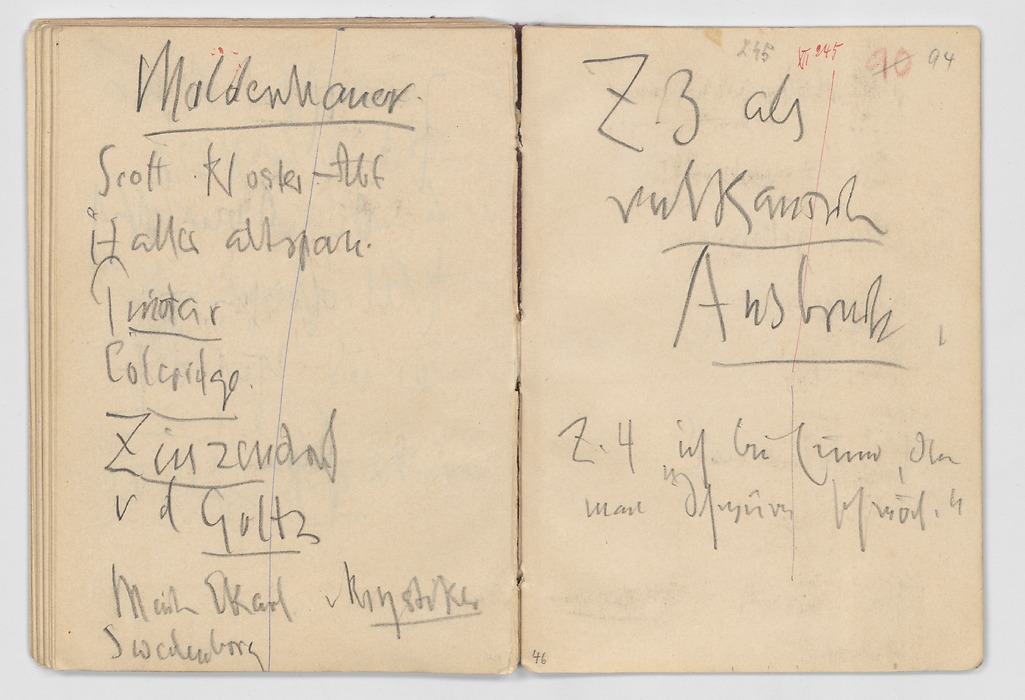 Moldenhauer.
Scott Kloster-Abt
Haller altspan.
Coleridge.
Zinzendorf
v d Goltz
Meist Ekart Mystiker
Swedenborg
46
245 VI 245 90 94
Z 3 als
vulkanisch
Ausbruch,
Z. 4 ich bin Einer, den
man